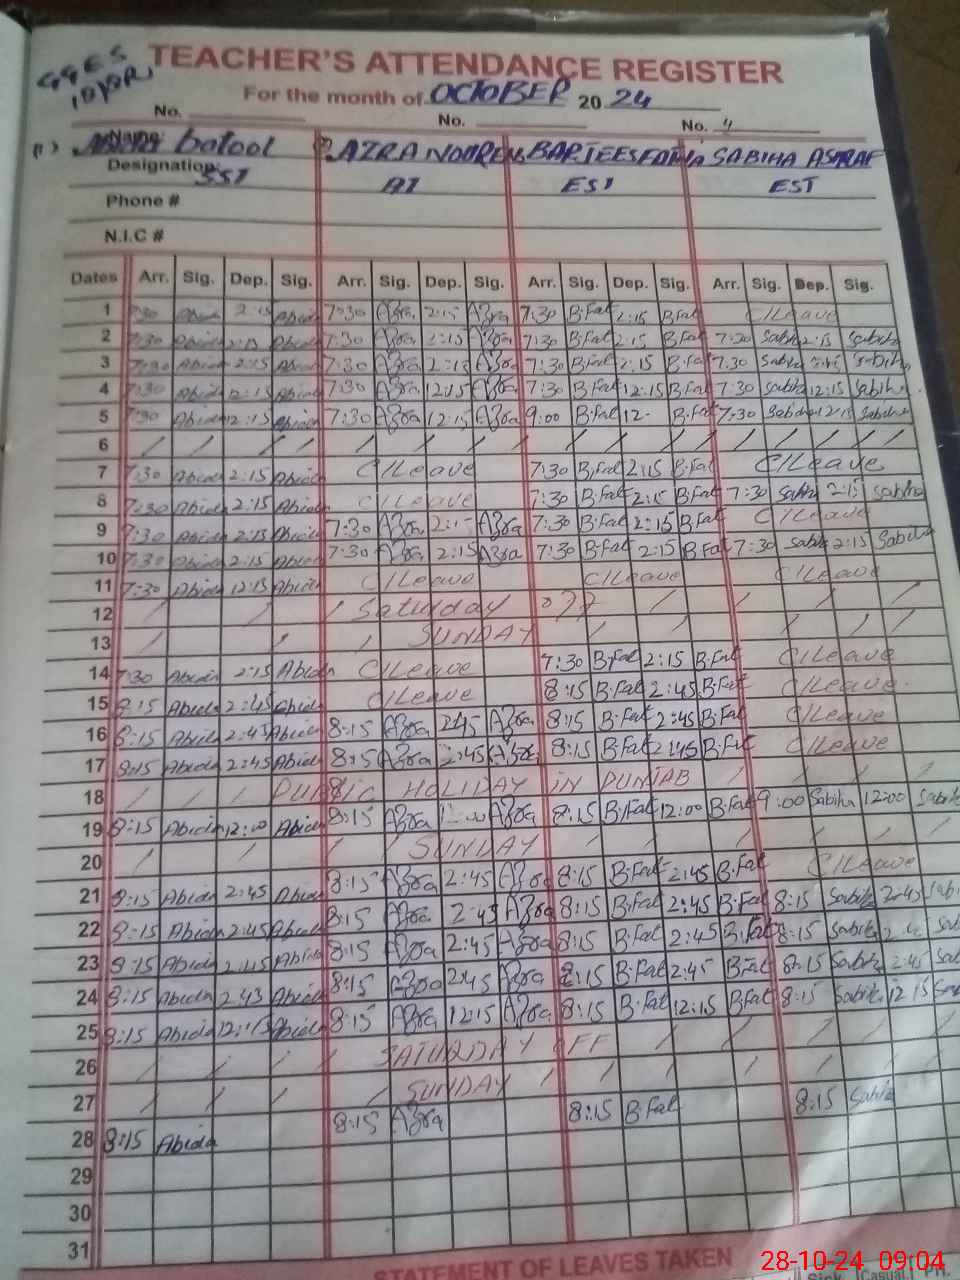 GGES
TEACHER'S ATTENDANCE REGISTER
For the month of OCTOBER 20 24
No. No. No. 4
(1) Name batool AZRA NOOREN BARJEES FATMA SABIHA ASHRAF
Designation SST AT EST EST
Phone #
N.I.C #
Dates Arr. Sig. Dep. Sig. Arr. Sig. Dep. Sig. Arr. Sig. Dep. Sig. Arr. Sig. Dep. Sig.
1 7:30 Abida 2:15 Abida 7:30 Azra 2:15 Azra 7:30 B.Fat 2:15 B.Fat C/Leave
2 7:30 Abida 2:15 Abida 7:30 Azra 2:15 Azra 7:30 B.Fat 2:15 B.Fat 7:30 Sabiha 2:15 Sabiha
3 7:30 Abida 2:15 Abida 7:30 Azra 2:15 Azra 7:30 B.Fat 2:15 B.Fat 7:30 Sabiha 2:15 Sabiha
4 7:30 Abida 12:15 Abida 7:30 Azra 12:15 Azra 7:30 B.Fat 12:15 B.Fat 7:30 Sabiha 12:15 Sabiha
5 7:30 Abida 12:15 Abida 7:30 Azra 12:15 Azra 9:00 B.Fat 12- B.Fat 7:30 Sabiha 12:15 Sabiha
6 / / / / / / / / / / / / / / / /
7 7:30 Abida 2:15 Abida C/Leave 7:30 B.Fat 2:15 B.Fat C/Leave
8 7:30 Abida 2:15 Abida C/Leave 7:30 B.Fat 2:15 B.Fat 7:30 Sabiha 2:15 Sabiha
9 7:30 Abida 2:15 Abida 7:30 Azra 2:15 Azra 7:30 B.Fat 2:15 B.Fat C/Leave
10 7:30 Abida 2:15 Abida 7:30 Azra 2:15 Azra 7:30 B.Fat 2:15 B.Fat 7:30 Sabiha 2:15 Sabiha
11 7:30 Abida 12:15 Abida C/Leave C/Leave C/Leave
12 / / / / Saturday OFF / / / /
13 / / / SUNDAY / / / / /
14 7:30 Abida 2:15 Abida C/Leave 7:30 B.Fat 2:15 B.Fat C/Leave
15 8:15 Abida 2:45 Abida C/Leave 8:15 B.Fat 2:45 B.Fat C/Leave
16 8:15 Abida 2:45 Abida 8:15 Azra 2:45 Azra 8:15 B.Fat 2:45 B.Fat C/Leave
17 8:15 Abida 2:45 Abida 8:15 Azra 2:45 Azra 8:15 B.Fat 2:45 B.Fat C/Leave
18 / / / PUBLIC HOLIDAY IN PUNJAB / / / /
19 8:15 Abida 12:00 Abida 8:15 Azra 12:00 Azra 8:15 B.Fat 12:00 B.Fat 9:00 Sabiha 12:00 Sabiha
20 / / / / / SUNDAY / / / / / / / /
21 8:15 Abida 2:45 Abida 8:15 Azra 2:45 Azra 8:15 B.Fat 2:45 B.Fat C/Leave
22 8:15 Abida 2:45 Abida 8:15 Azra 2:45 Azra 8:15 B.Fat 2:45 B.Fat 8:15 Sabiha 2:45 Sabi
23 8:15 Abida 2:45 Abida 8:15 Azra 2:45 Azra 8:15 B.Fat 2:45 B.Fat 8:15 Sabiha 2:45 Sab
24 8:15 Abida 2:45 Abida 8:15 Azra 2:45 Azra 8:15 B.Fat 2:45 B.Fat 8:15 Sabiha 2:45 Sab
25 8:15 Abida 12:15 Abida 8:15 Azra 12:15 Azra 8:15 B.Fat 12:15 B.Fat 8:15 Sabiha 12:15 Sab
26 / / / / SATURDAY OFF / / / / / /
27 / / / / SUNDAY / / / / / / / /
28 8:15 Abida 8:15 Azra 8:15 B.Fat 8:15 Sabiha
29
30
31
STATEMENT OF LEAVES TAKEN
28-10-24 09:04